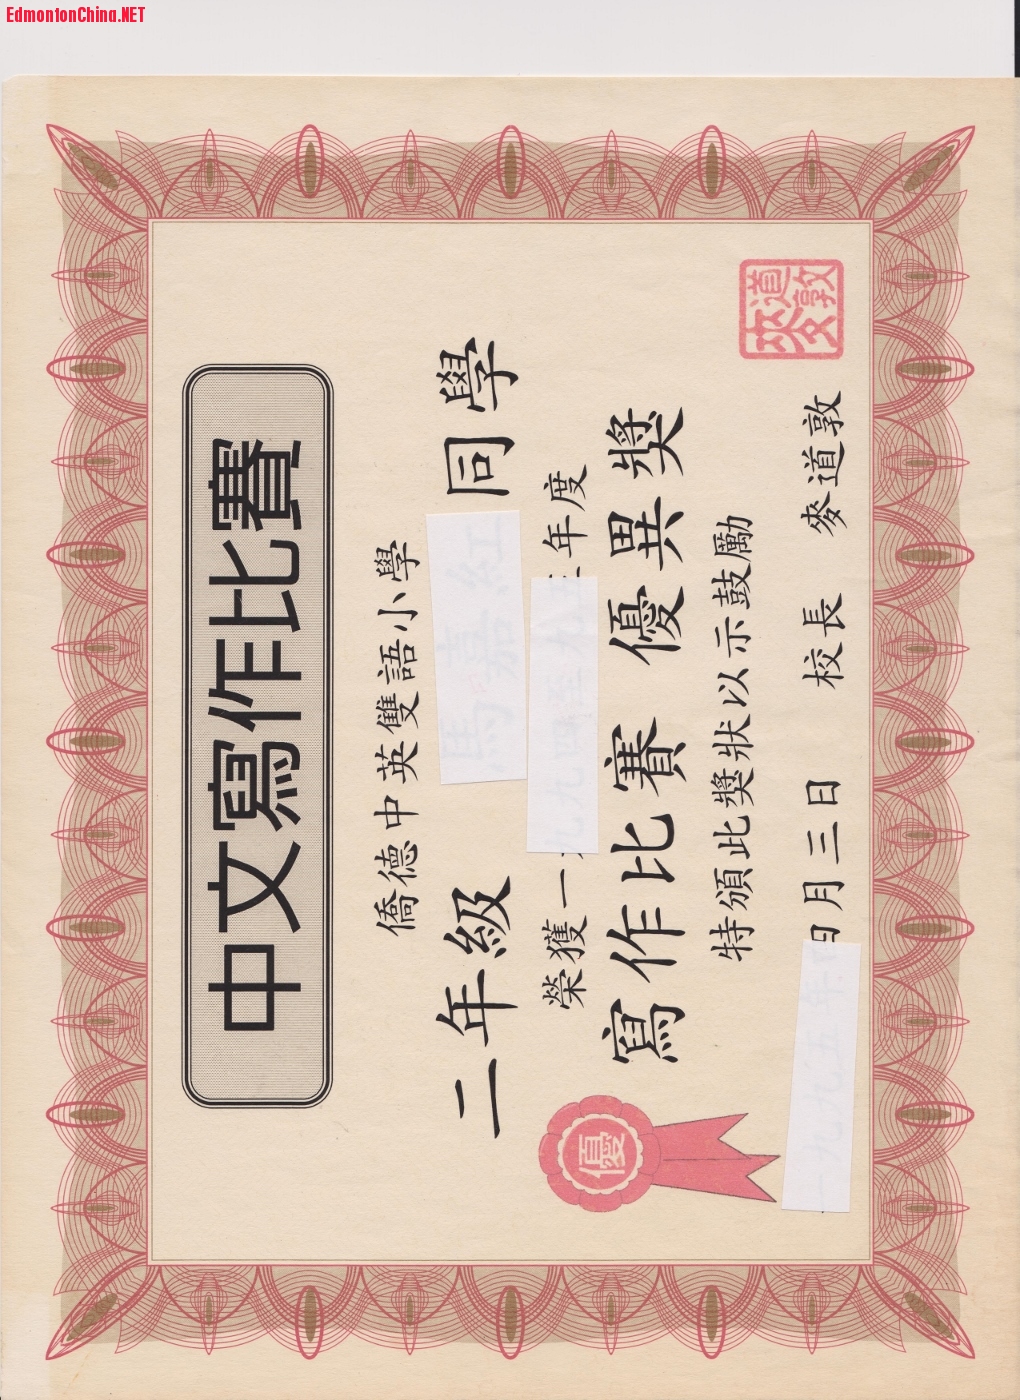 EdmontonChina.NET
中文寫作比賽
僑德中英雙語小學
二年級 同學
榮獲一 年度
寫作比賽 優異獎
特頒此獎狀以示鼓勵
四月三日 校長 麥道敦
麥道敦
優